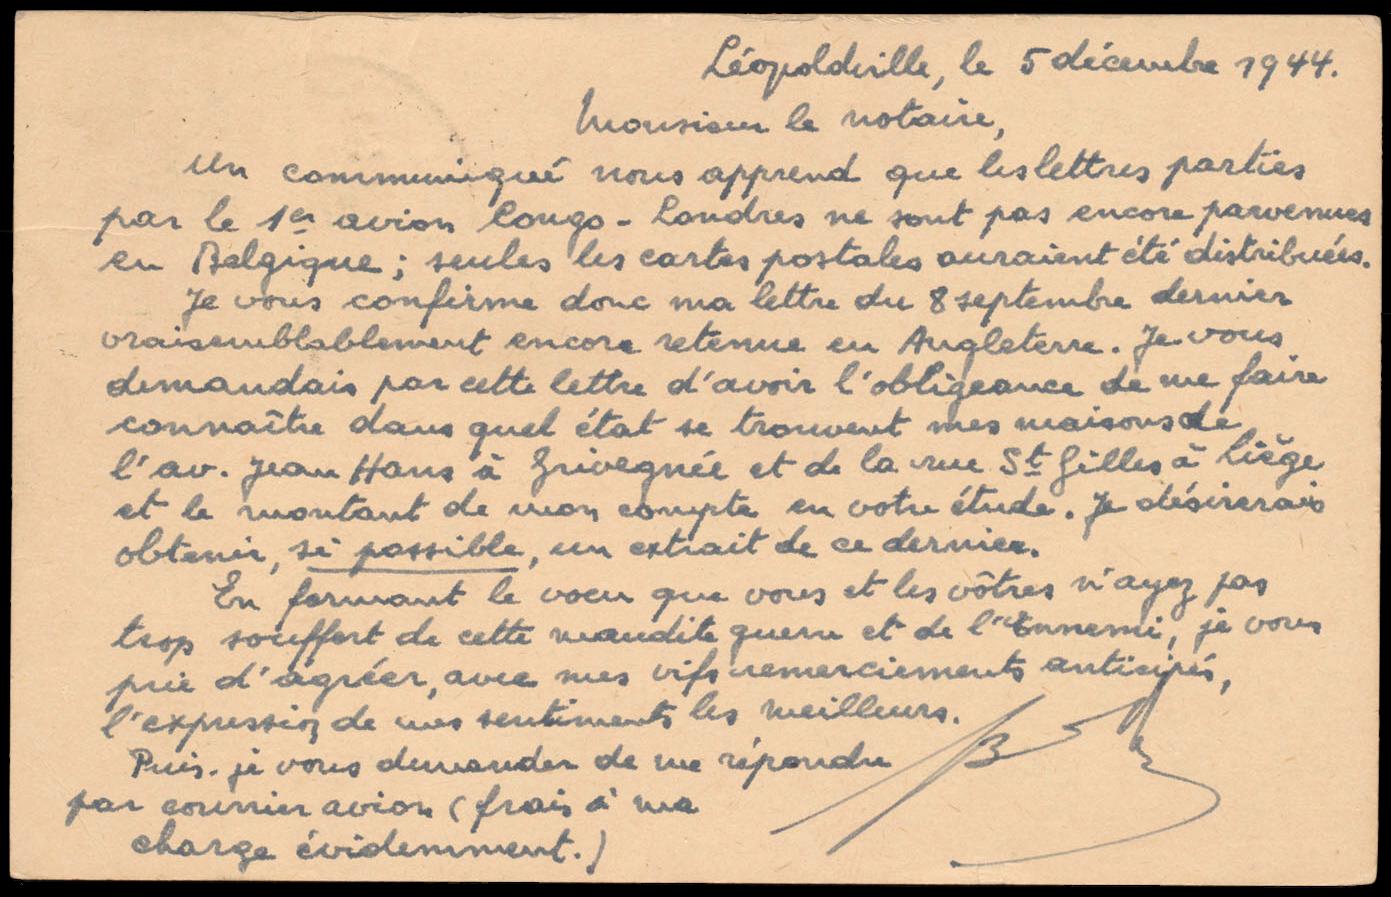 Léopoldville, le 5 décembre 1944.
Monsieur le notaire,
Un communiqué nous apprend que les lettres parties
par le 1er avion Congo - Londres ne sont pas encore parvenues
en Belgique ; seules les cartes postales auraient été distribuées.
Je vous confirme donc ma lettre du 8 septembre dernier
vraisemblablement encore retenue en Angleterre. Je vous
demandais par cette lettre d'avoir l'obligeance de me faire
connaître dans quel état se trouvent mes maisons de
l'av. Jean Hans à Grivegnée et de la rue St Gilles à Liège
et le montant de mon compte en votre étude. Je désirerais
obtenir, si possible, un extrait de ce dernier.
En formant le voeu que vous et les vôtres n'ayez pas
trop souffert de cette maudite guerre et de l'Ennemi, je vous
prie d'agréer, avec mes vifs remerciements anticipés,
l'expression de mes sentiments les meilleurs.
Puis-je vous demander de me répondre
par courrier avion (frais à ma
charge évidemment.)